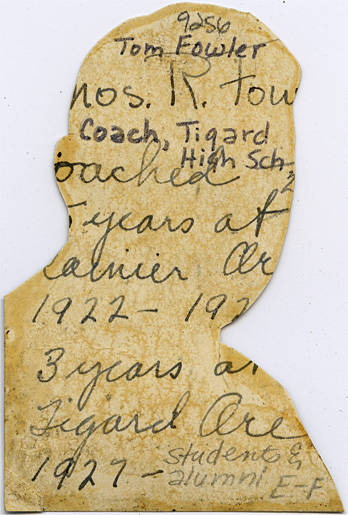 9256
Tom Fowler
hos. R. Fow
Coach, Tigard
High Sch
oached
2
5 years at
ainier Or
1922 - 192
3 years a
Tigard Ore
1927 -
students &
alumni E-F